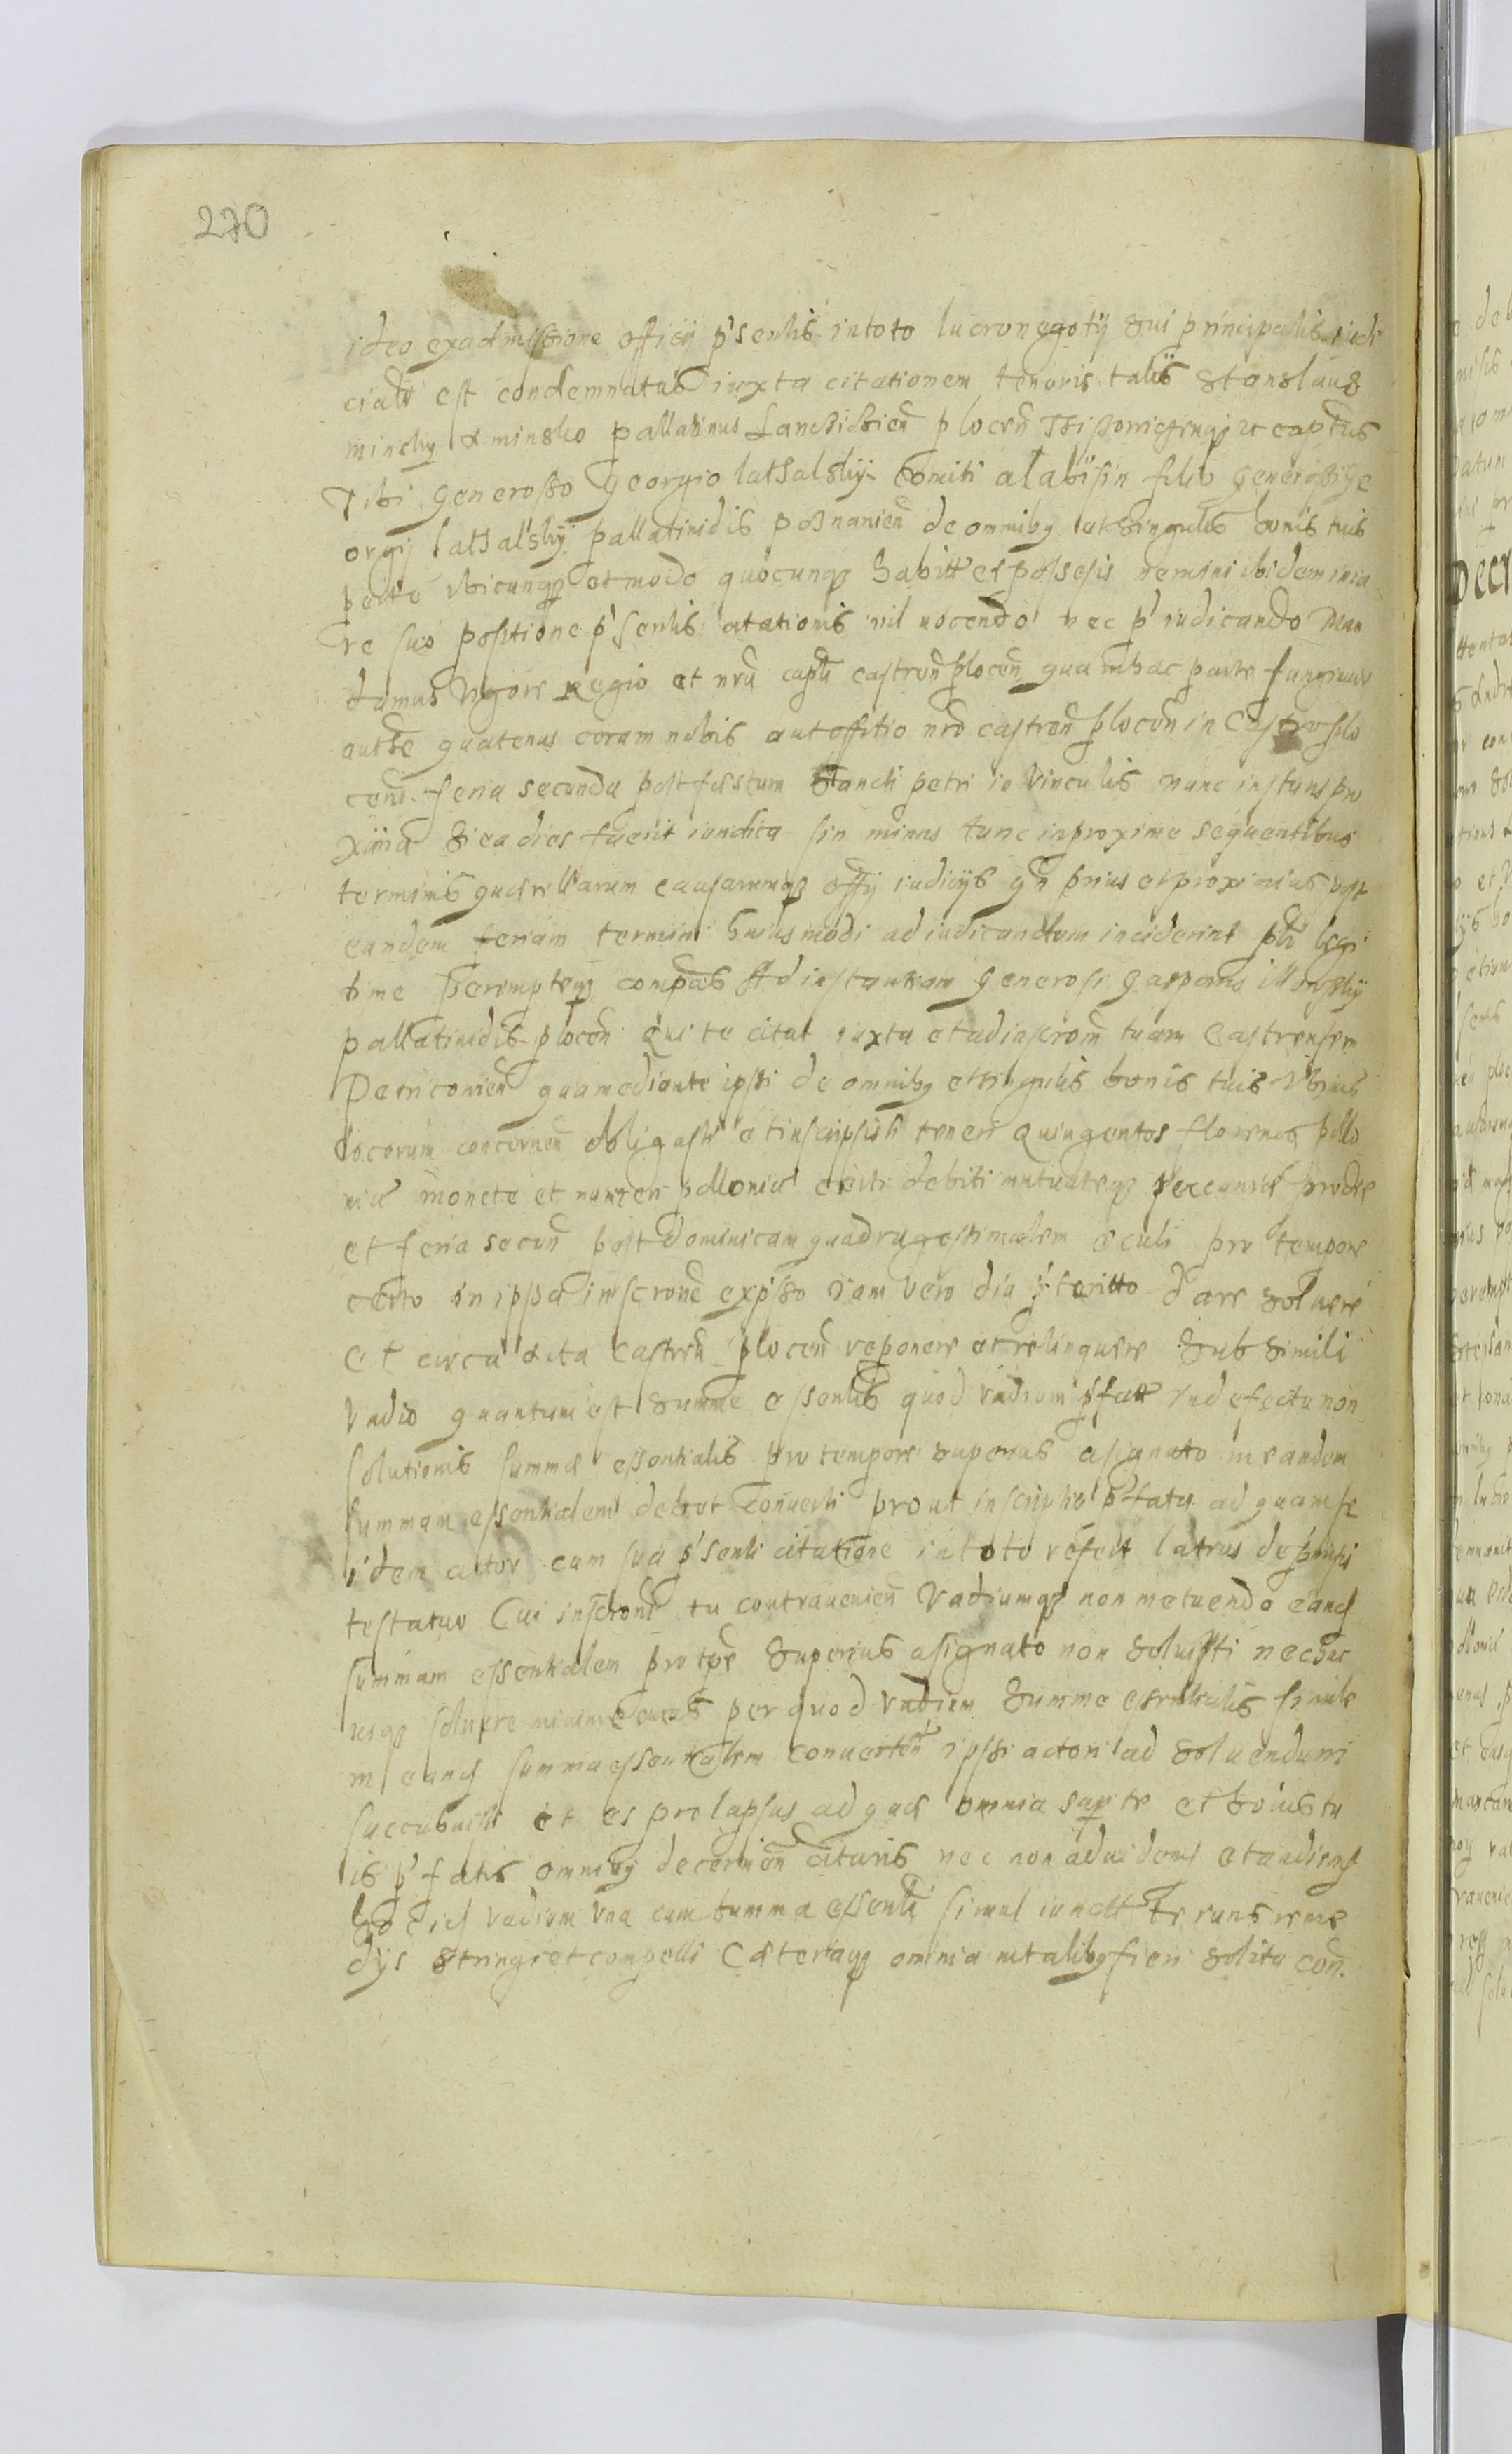 270
ideo exadmissione officy p'sentis intoto lucro negoty sui principalis iudi
cialr est condemnatus iuxta citationem tenoris talis Stanslaus
minsky d minsko pallatinus Lancsicien plocen capteus
Tibi Generosso Georgio lathalsky Comiti alabisin filio generossi Ge
orgy lathalsky pallatinidis posnanien de omnibq et singulis bonis tuis
vbicunq et modo quocunq habitt et possesis nemini ibidem iniu
re suo positione p'sentis citationis nil nocendo nec p'iudicando Man
damus Vigore Regio et nro captu castren plocen qua inhac parte fungimur
autthe quatenus coram nobis aut offitio nro castren plocen in Castro plo
cen feria secunda post festum Sancti petri in Vinculis nunc instans pro
xima Si ea dies fuerit iuridica sin minus tunc inproxime sequentibus
terminis querellarum causarumq offy iudicys qn prius et proximius post
eandem feriam termini huiusmodi ad iudicandum inciderint legi
time peremptq compas Ad instantiam Generosi Gasparis Minsky
pallatinidis plocen qui te citat iuxta et ad inscrom tuam Castrensem
Petriconien qua mediante ipsi de omnibq et singulis bonis tuis
locorum concernen obligasti et inscripsisti teneri Quingentos florenos pollo
nicl monete et numeri pollonicl debiti mutuateq pecuniae
et feria secun post dominicam quadragesimalem oculi pro tempore
certo in ippa inscrone exp'sso iam vero diu p'teritto dare soluere
et circa Acta Castren plocen reponere et relinquere Sub simili
Vadio quantum est summe essentlis quod vadium p'fatt indefectu non
solutionis summe essentialis pro tempore superius asignato in eandem
summam essentialem debet conuerti prout inscriptio p'fata ad quam se
idem actor cum sua p'senti citatione in toto refert latius depmisi
testatur Cui inscroni tu contrauenien Vadiumq non metuendo eand
summam essentialem pro tpe superius asignato non soluisti nec huc
usq soluere minime curas per quod vadium summe essentialis simile
in eand summa essentialem conuerten ipsi actori ad soluendum
succubuisti et es prolapsus ad que omnia te et bonis tu
is p'fatis omnibq decernen citaris nec non aduidend et audiend
vadium vna cum summa essentli simul iunctt te reme
dys stringi et compelli Ceteraq omnia intalibq fieri solita